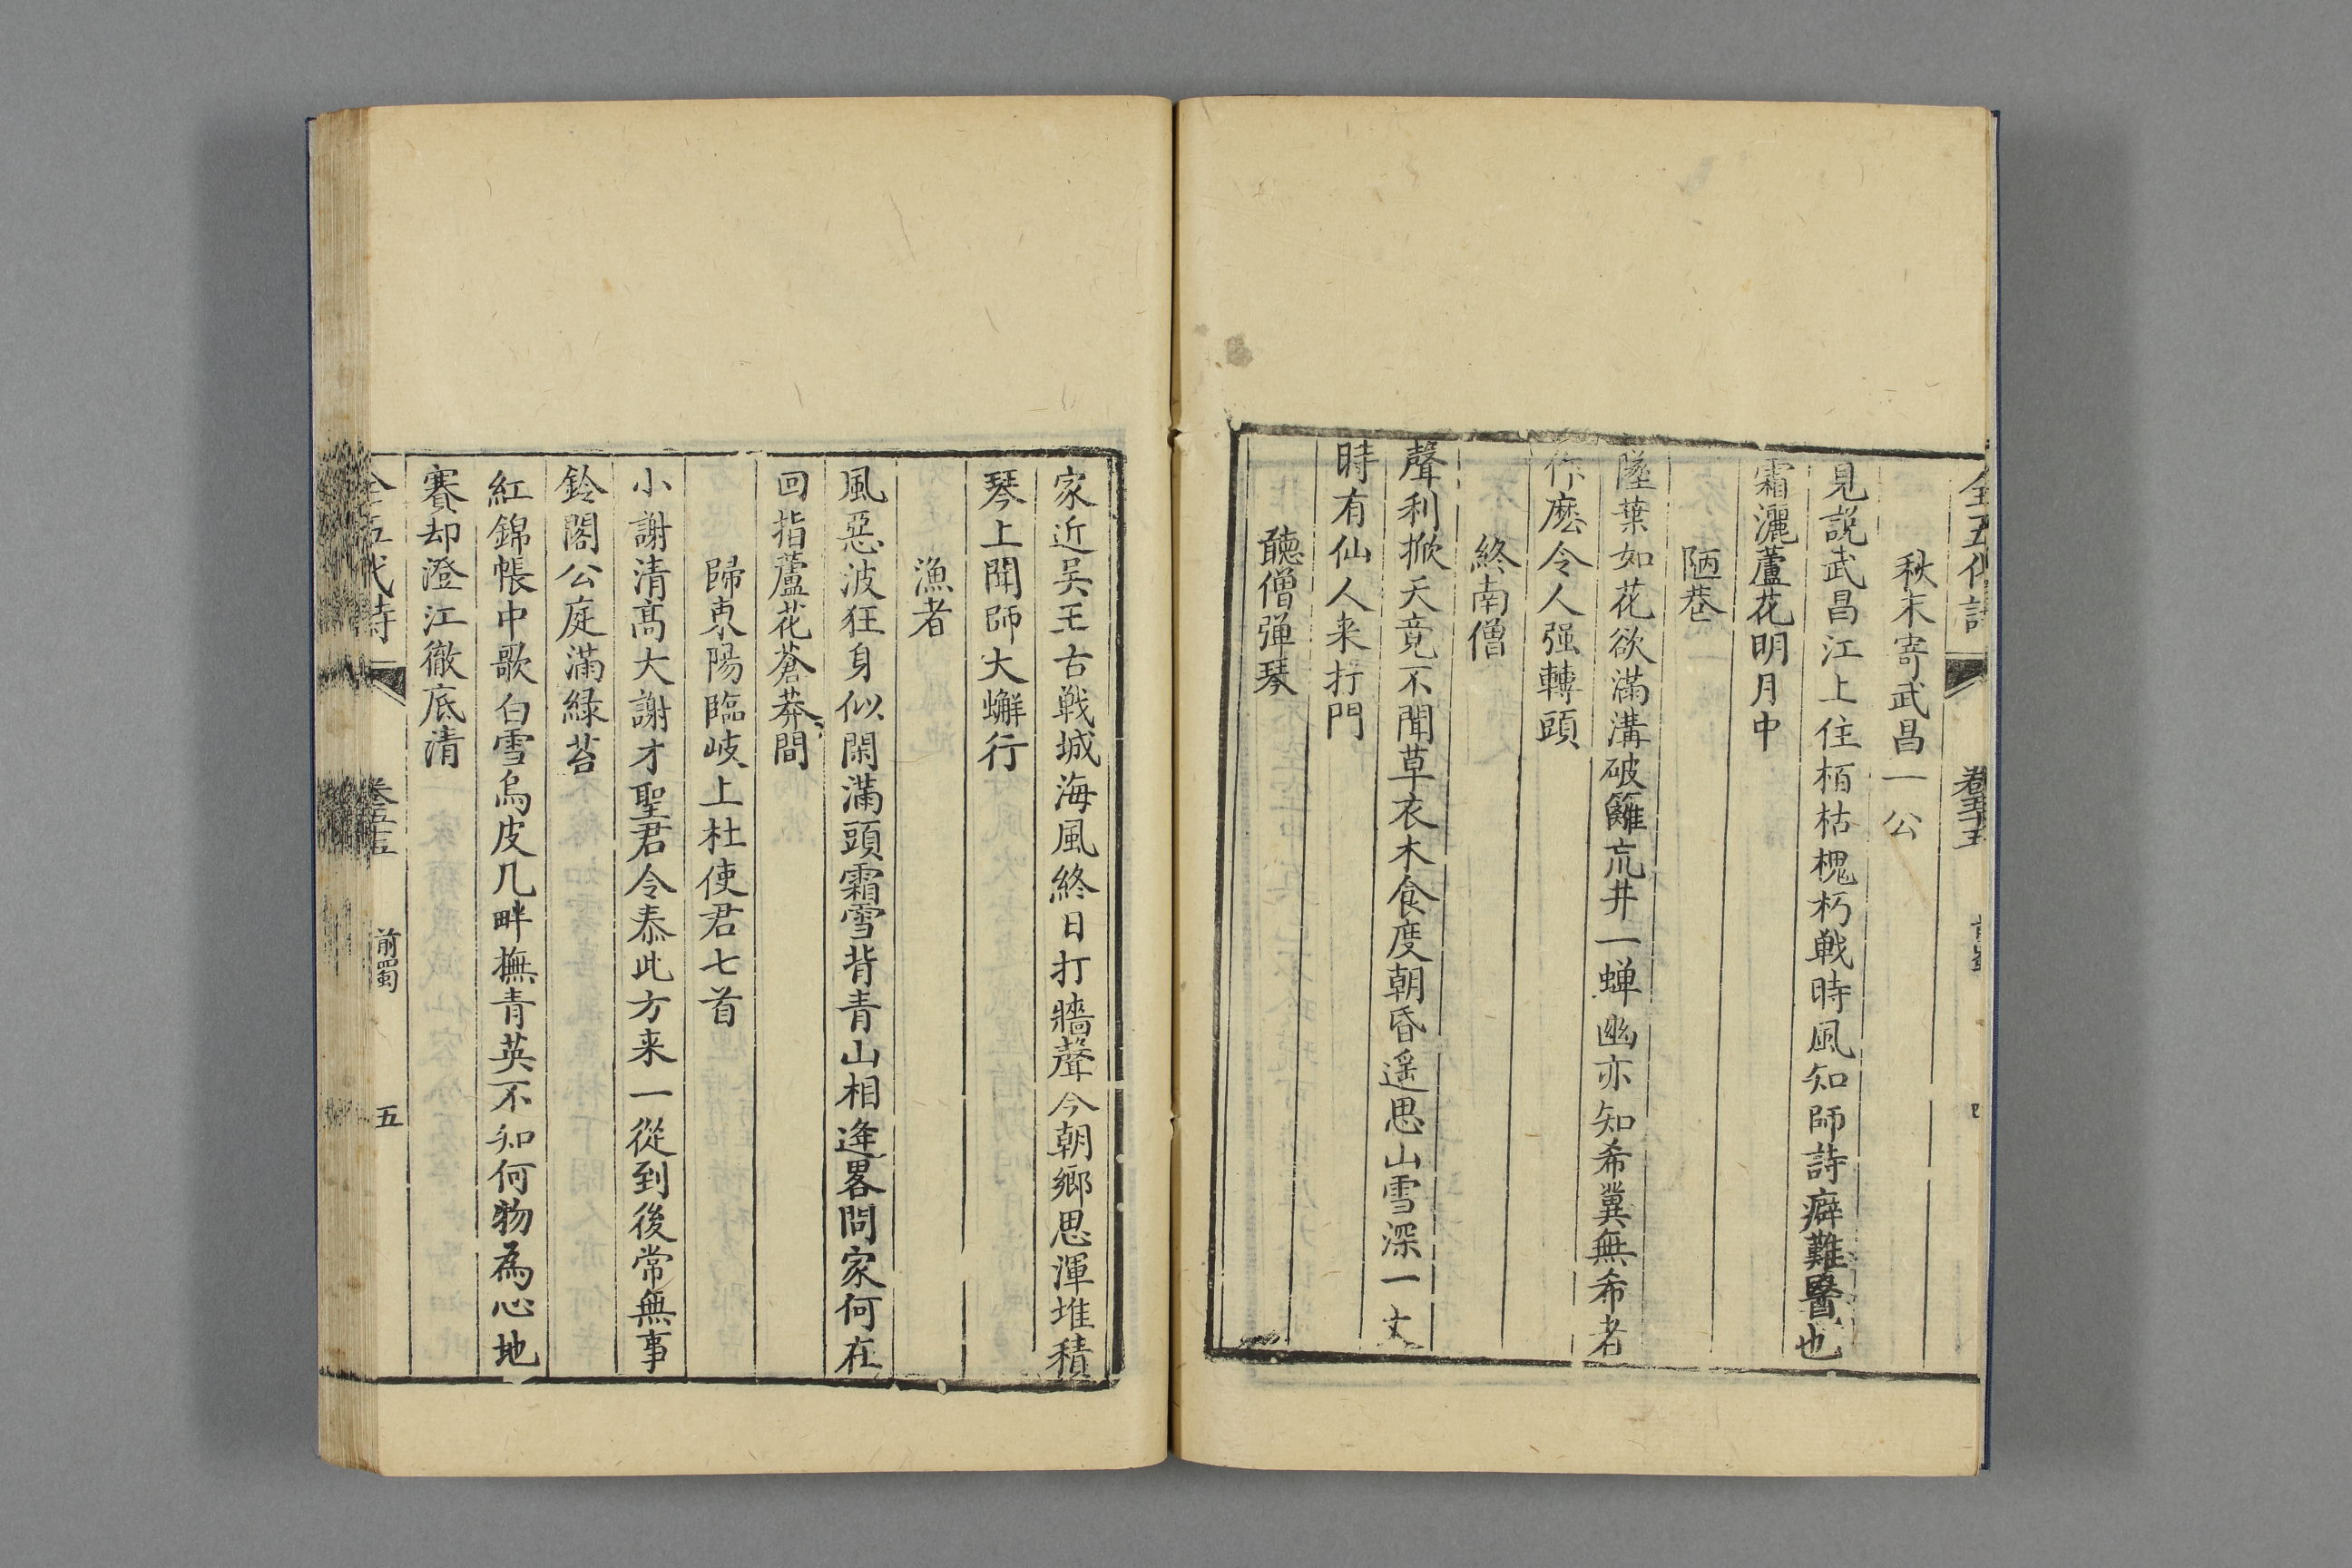 全五代詩
卷五十五
秋末寄武昌一公
見説武昌江上住栢枯槐朽戦時風知師詩癖難醫也
霜灑蘆花明月中
陋巷
墜葉如花欲滿溝破籬荒井一蝉幽亦知希冀無希者
作麽令人强轉頭
終南僧
聲利掀天竟不聞草衣木食度朝昏遥思山雪深一丈
時有仙人来打門
聽僧弾琴
家近吴王古戦城海風終日打牆聲今朝鄉思渾堆積
琴上聞師大蠏行
漁者
風惡波狂身似閑滿頭霜雪背青山相逢畧問家何在
回指蘆花蒼莽間
歸東陽臨岐上杜使君七首
小謝清髙大謝才聖君令泰此方来一從到後常無事
鈴閣公庭滿緑苔
紅錦帳中歌白雪烏皮几畔撫青英不知何物為心地
賽却澄江徹底清
全五代詩
卷五十五
前蜀
五